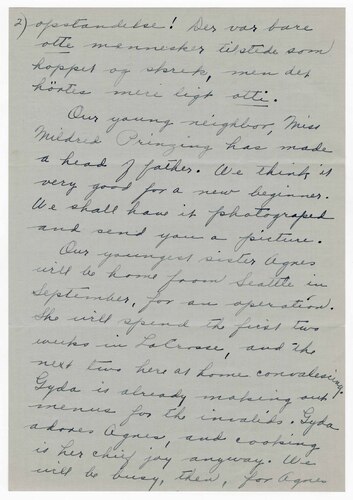 2) opstandelse! Der var bare
otte mennesker tilstede som
hoppet og skrek, men det
hörtes mere ligt otti.
Our young neighbor, Miss
Mildred Prinzing has made
a head of father. We think it
very good for a new beginner.
We shall have it photograped
and send you a picture.
Our youngest sister Agnes
will be home from Seattle in
September, for an operation.
She will spend the first two
weeks in LaCrosse, and the
next two here at home convalesing.
Gyda is already making out
menus for the invalids. Gyda
adores Agnes, and cooking
is her chief joy anyway. We
will be busy, then, for Agnes